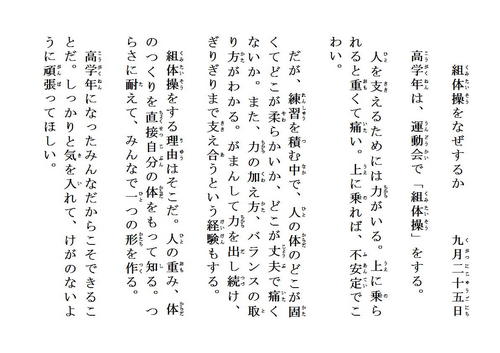 組体操をなぜするか　　九月二十五日
高学年は、運動会で「組体操」をする。
人を支えるためには力がいる。上に乗ら
れると重くて痛い。上に乗れば、不安定でこ
わい。
だが、練習を積む中で、人の体のどこが固
くてどこが柔らかいか、どこが丈夫で痛く
ないか。また、力の加え方、バランスの取
り方がわかる。がまんして力を出し続け、
ぎりぎりまで支え合うという経験もする。
組体操をする理由はそこだ。人の重み、体
のつくりを直接自分の体をもって知る。つ
らさに耐えて、みんなで一つの形を作る。
高学年になったみんなだからこそできるこ
とだ。しっかりと気を入れて、けがのないよ
うに頑張ってほしい。